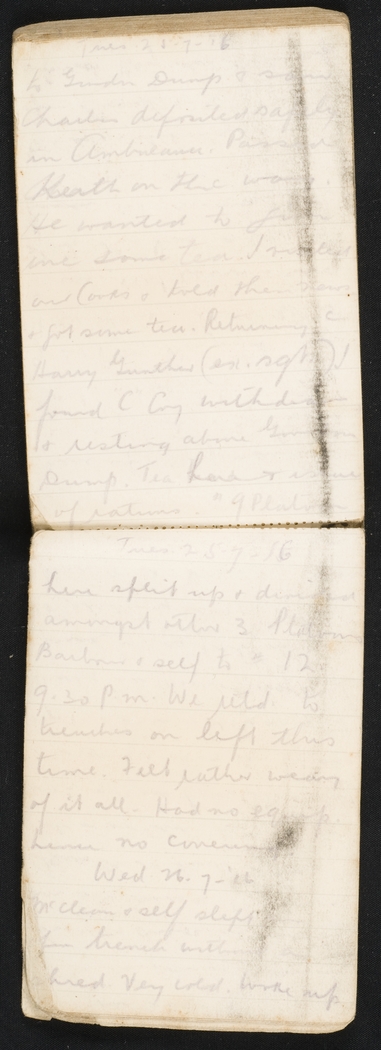 Tues. 25-7-16
to Dump & saw
Charlie deposited safely
in Ambulance. Passed
Keath on the way.
He wanted to give
me some tea. I
our Cooks & told them
& got some tea. Returning
Harry Gunther (ex. sgt)! I
found C Coy withdrawn
& resting above
Dump. Tea here & issue
of rations. 9 Platoon
Tues. 25-7-16
here split up & divided
amongst other 3 Platoons
Barbour & self to 12
9.30 P.m. We retd. to
trenches on left this
time. Felt rather weary
of it all. Had no equip.
hence no covering
Wed 26-7-16
McClean & self slept
in trench with
shred. Very cold. Woke up